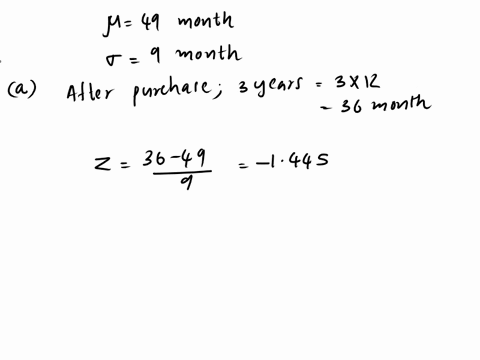 μ = 49 month
σ = 9 month
(a) After purchase; 3 years = 3 × 12
= 36 month
Z = (36 - 49) / 9 = -1.445